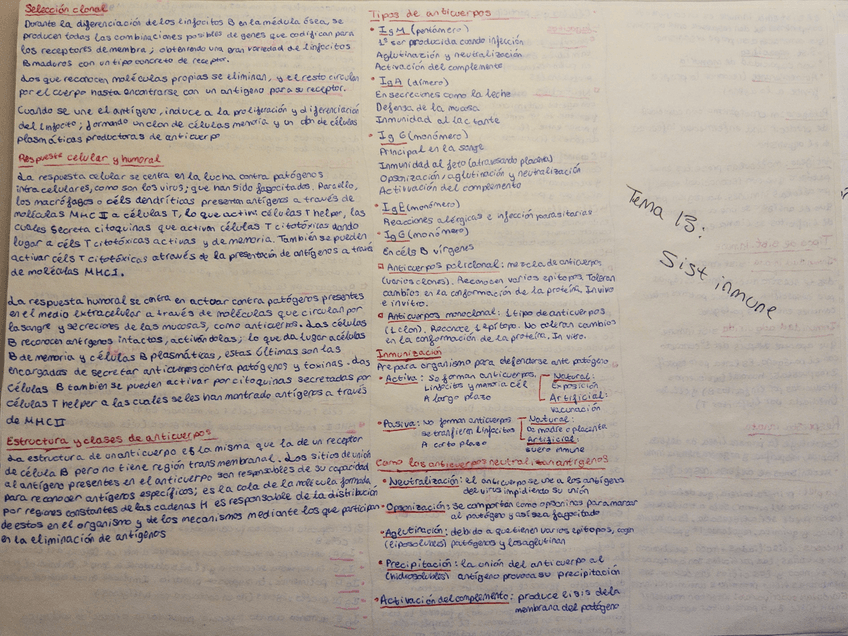 Selección clonal
Durante la diferenciación de los linfocitos B en la médula ósea, se
producen todas las combinaciones posibles de genes que codifican para
los receptores de membra; obteniendo una gran variedad de linfocitos
B maduros con un tipo concreto de receptor.
Los que reconocen moléculas propias se eliminan, y el resto circulan
por el cuerpo hasta encontrarse con un antígeno para su receptor.
Cuando se une el antígeno, induce a la proliferación y diferenciación
del linfocito; formando un clon de células memoria y un clon de células
plasmáticas productoras de anticuerpo
Respuesta celular y humoral
La respuesta celular se centra en la lucha contra patógenos
intracelulares, como son los virus; que han sido fagocitados. Para ello,
los macrófagos o céls dendríticas presentan antígenos a través de
moléculas MHC II a células T, lo que activa células T helper, las
cuales secreta citoquinas que activan células T citotóxicas dando
lugar a céls T citotóxicas activas y de memoria. También se pueden
activar céls T citotóxicas através de la presentación de antígenos a través
de moléculas MHC I.
La respuesta humoral se centra en actuar contra patógenos presentes
en el medio extracelular a través de moléculas que circulan por
la sangre y secreciones de las mucosas, como anticuerpos. Las células
B reconocen antígenos intactos, activándolas; lo que da lugar a células
B de memoria y células B plasmáticas, estas últimas son las
encargadas de secretar anticuerpos contra patógenos y toxinas. Las
células B también se pueden activar por citoquinas secretadas por
células T helper a las cuales se les han montrado antígenos a través
de MHC II
Estructura y clases de anticuerpos
La estructura de un anticuerpo es la misma que la de un receptor
de célula B pero no tiene región transmembranal. Los sitios de unión
al antígeno presentes en el anticuerpo son responsables de su capacidad
para reconocer antígenos específicos; es la cola de la molécula formada
por regiones constantes de las cadenas H es responsable de la distribución
de estos en el organismo y de los mecanismos mediante los que participan
en la eliminación de antígenos
Tipos de anticuerpos
• IgM (pentómero)
1º ser producida cuando infección
Aglutinación y neutralización
Activación del complemento
• IgA (dímero)
En secreciones como la leche
Defensa de la mucosa
Inmunidad al lactante
• IgG (monómero)
Principal en la sangre
Inmunidad al feto (atravesando placenta)
Opsonización, aglutinación y neutralización
Activación del complemento
• IgE (monómero)
Reacciones alérgicas e infección parasitarias
• IgG (monómero)
En céls B vírgenes
Anticuerpos policlonal: mezcla de anticuerpos
(varios clones). Reconocen varios epitopos. Toleran
cambios en la conformación de la proteína. In vivo
e in vitro.
Anticuerpos monoclonal: 1 tipo de anticuerpos
(1 clon). Reconoce 1 epítopo. No toleran cambios
en la conformación de la proteína. In vitro.
Inmunización
Prepara organismo para defenderse ante patógeno
• Activa: Se forman anticuerpos,
linfocitos y memoria cél
A largo plazo
Natural:
Exposición
Artificial:
vacunación
• Pasiva: No forman anticuerpos
se transfieren linfocitos
A corto plazo
Natural:
de madre a placenta
Artificial:
suero inmune
Como los anticuerpos neutralizan antígenos
• Neutralización: el anticuerpo se une a los antígenos
del virus impidiendo su unión
• Opsonización: se comportan como opsoninas para marcar
al patógeno y así sea fagocitado
• Aglutinación: debido a que tienen varios epitopos, cogen
(liposolubles) patógenos y los aglutinan
• Precipitación: la unión del anticuerpo al
(hidrosolubles) antígeno provoca su precipitación
• Activación del complemento: produce lisis de la
membrana del patógeno
Tema 13:
Sist inmune